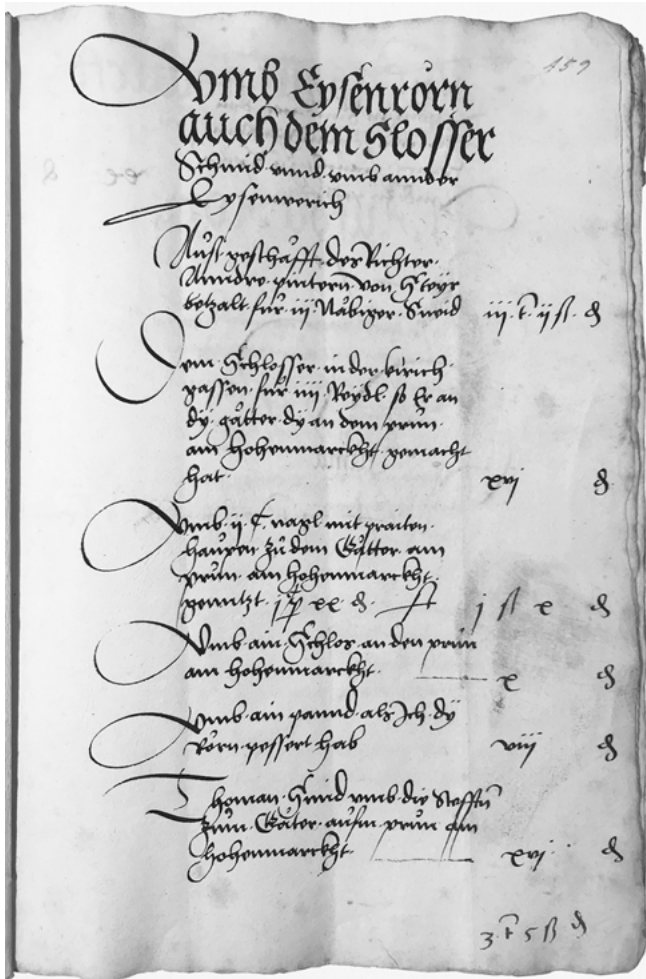 459
Vmb Eysenrörn
auch dem Slosser
Schmid vnnd vmb annder
Eysenwerich
Auß geschäfft des Richter
Anndre pintern von Steyr
betzalt für iij Näbiger Smid iii t ii ß d
Dem Schlosser in der kirich
gassen für iiij Reydl so Er an
dy gätter dy an dem prün
am hohenmarckht gemacht
hat xvj d
Vmb ii C nagl mit praiten
haupen zu dem Gätter am
prün am hohenmarckht
genutzt xx d j ß x d
Vmb ain Schlos an den prün
am hohenmarckht x d
Vmb ain pannd als Ich dy
Rörn pessert hab viii d
Thoman Smid vmb die Stefften
zum Gäter aufm prün am
hohenmarckht xvj d
3 t 5 ß d